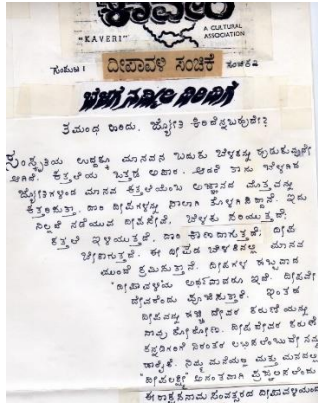 ಕಾವೇರಿ
"KAVERI"
A CULTURAL
ASSOCIATION
ಸಂಪುಟ ೧ ದೀಪಾವಳಿ ಸಂಚಿಕೆ ಸಂಚಿಕೆ ೩
ತಮಂಧ ಘನ ಜ್ಯೋತಿ
ಸಂಸ್ಕೃತಿಯ ಉದ್ದಕ್ಕೂ ಮಾನವನ ಬದುಕು ಬೆಳಕನ್ನು ಹುಡುಕುವುದೇ
ಆಗಿದೆ. ಕತ್ತಲೆಯ ಒತ್ತಡ ಅಪಾರ. ಆದರೆ ತಾನು ಬೆಳಗಿದ
ಜ್ಯೋತಿಗಳಿಂದ ಮಾನವ ಕತ್ತಲೆಯೆಂಬ ಅಜ್ಞಾನದ ಮೊತ್ತವನ್ನು
ಕತ್ತರಿಸುತ್ತಾ, ದಾರಿ ದೀಪಗಳನ್ನು ಸಾಲಾಗಿ ಕೊಳಗಿಸಿದ್ದಾನೆ. ಇದು
ನಿಲ್ಲದೆ ನಡೆಯುವ ದೀಪಸೇವೆ. ಬೆಳಕು ಸುರಿಯುತ್ತದೆ;
ಕತ್ತಲೆ ಇಳಿಯುತ್ತದೆ, ದಾರಿ ಕಾಣದಾಗುತ್ತದೆ; ದೀಪ
ಬೇಕಾಗುತ್ತದೆ. ಈ ದೀಪದ ಬೆಳಕಿನಲ್ಲಿ ಮಾನವ
ಮುಂದೆ ಕ್ರಮಿಸುತ್ತಾನೆ. ದೀಪಗಳ ಹಬ್ಬವಾದ
"ದೀಪಾವಳಿ"ಯ ಅರ್ಥವಾದರೂ ಇದೆ. ದೀಪವೇ
ದೇವರೆಂದು ಪೂಜಿಸುತ್ತಾರೆ. ಇಂತಹ
ದೀಪವನ್ನು ಹಚ್ಚಿ ದೇವರ ಕರುಣೆಯನ್ನು
ನಾವು ಕೋರೋಣ. ದೀಪದೇವರ ಕರುಣೆ
ಕನ್ನಡಿಗರಿಗೆ ನಿರಂತರ ಲಭಿಸಲೆಂಬುದೇ ನನ್ನ
ಹಾರೈಕೆ. ನಿಮ್ಮ ಮನೆಯಲ್ಲಿ ಮತ್ತು ಮನದಲ್ಲಿ
"ದೀಪಲಕ್ಷ್ಮೀ" ಅನಂತವಾಗಿ ಪ್ರಜ್ವಲಿಸಲೆಂದು
ಈ ರಾಕ್ಷಸನಾಮ ಸಂವತ್ಸರದ ದೀಪಾವಳಿಯಂದು